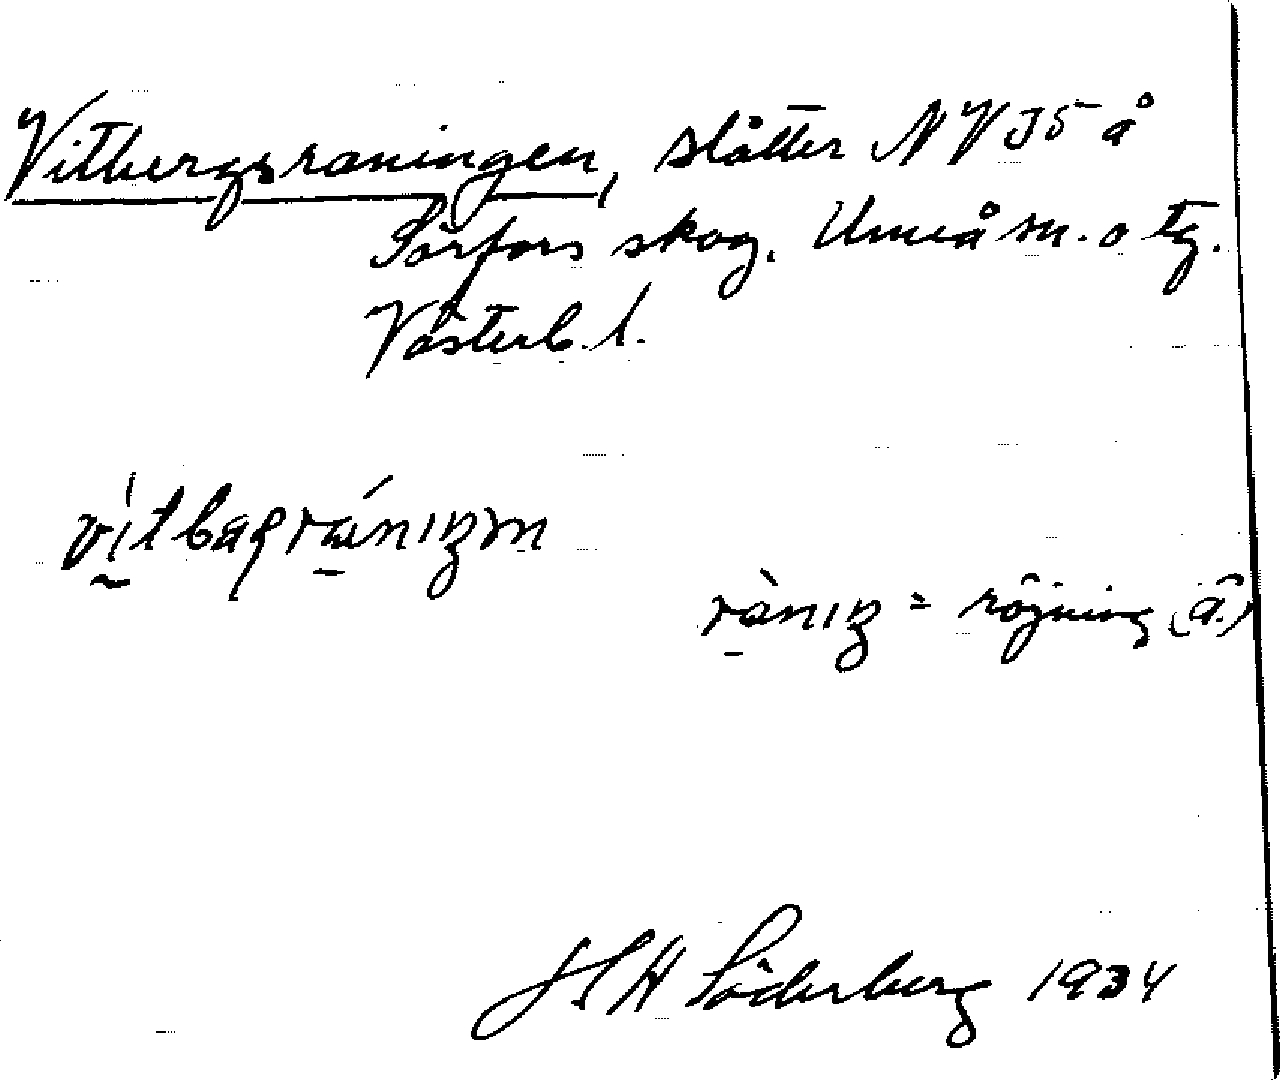 Vitbergsraningen, slåtter NV J5 å
Sörfors skog. Umeå sn. o tg.
Västerb. l.
vìtbæg̣ránıŋın
rànıŋ = röjning (å.)
J S H Söderberg 1934